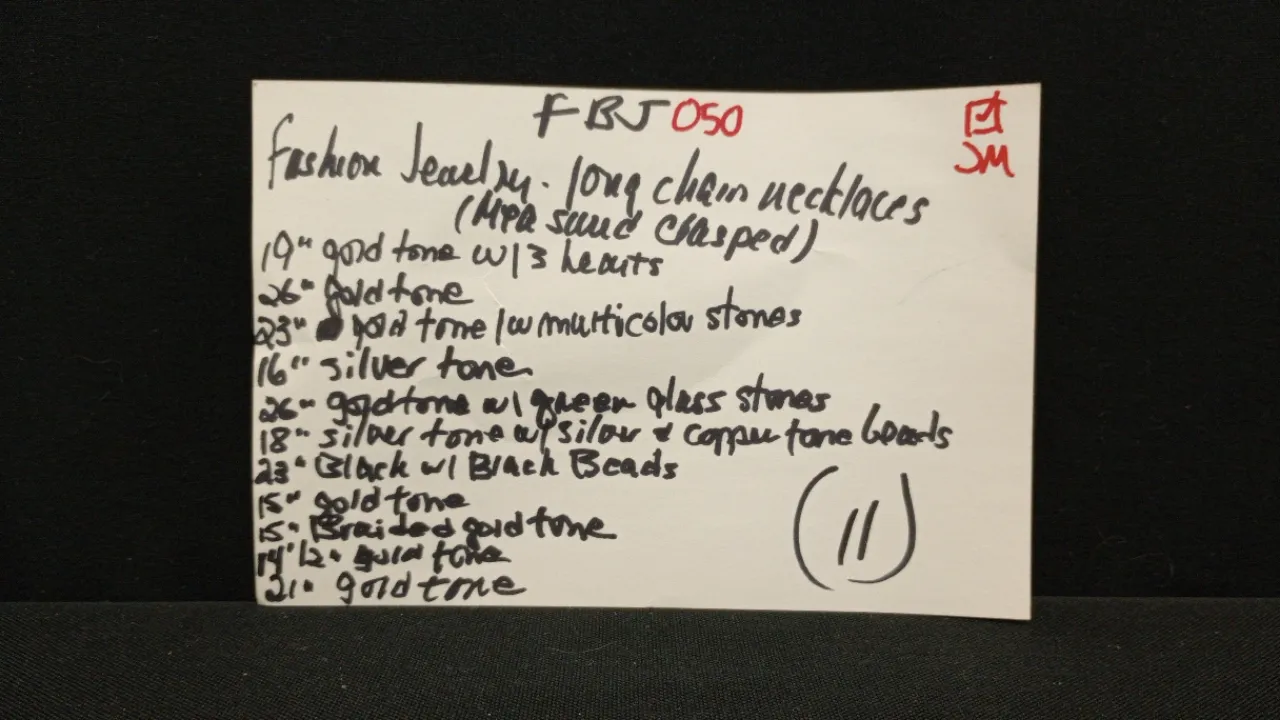 FBJ 050
JM
Fashion Jewelry. long chain necklaces
(Measured Clasped)
19" gold tone w/3 hearts
26" gold tone
23" gold tone /w multicolor stones
16" silver tone
26" goldtone w/ green glass stones
18" silver tone w/ silver & copper tone beads
23" Black w/ Black Beads
15" gold tone
15" Braided gold tone
14 1/2" gold tone
21" gold tone
(11)